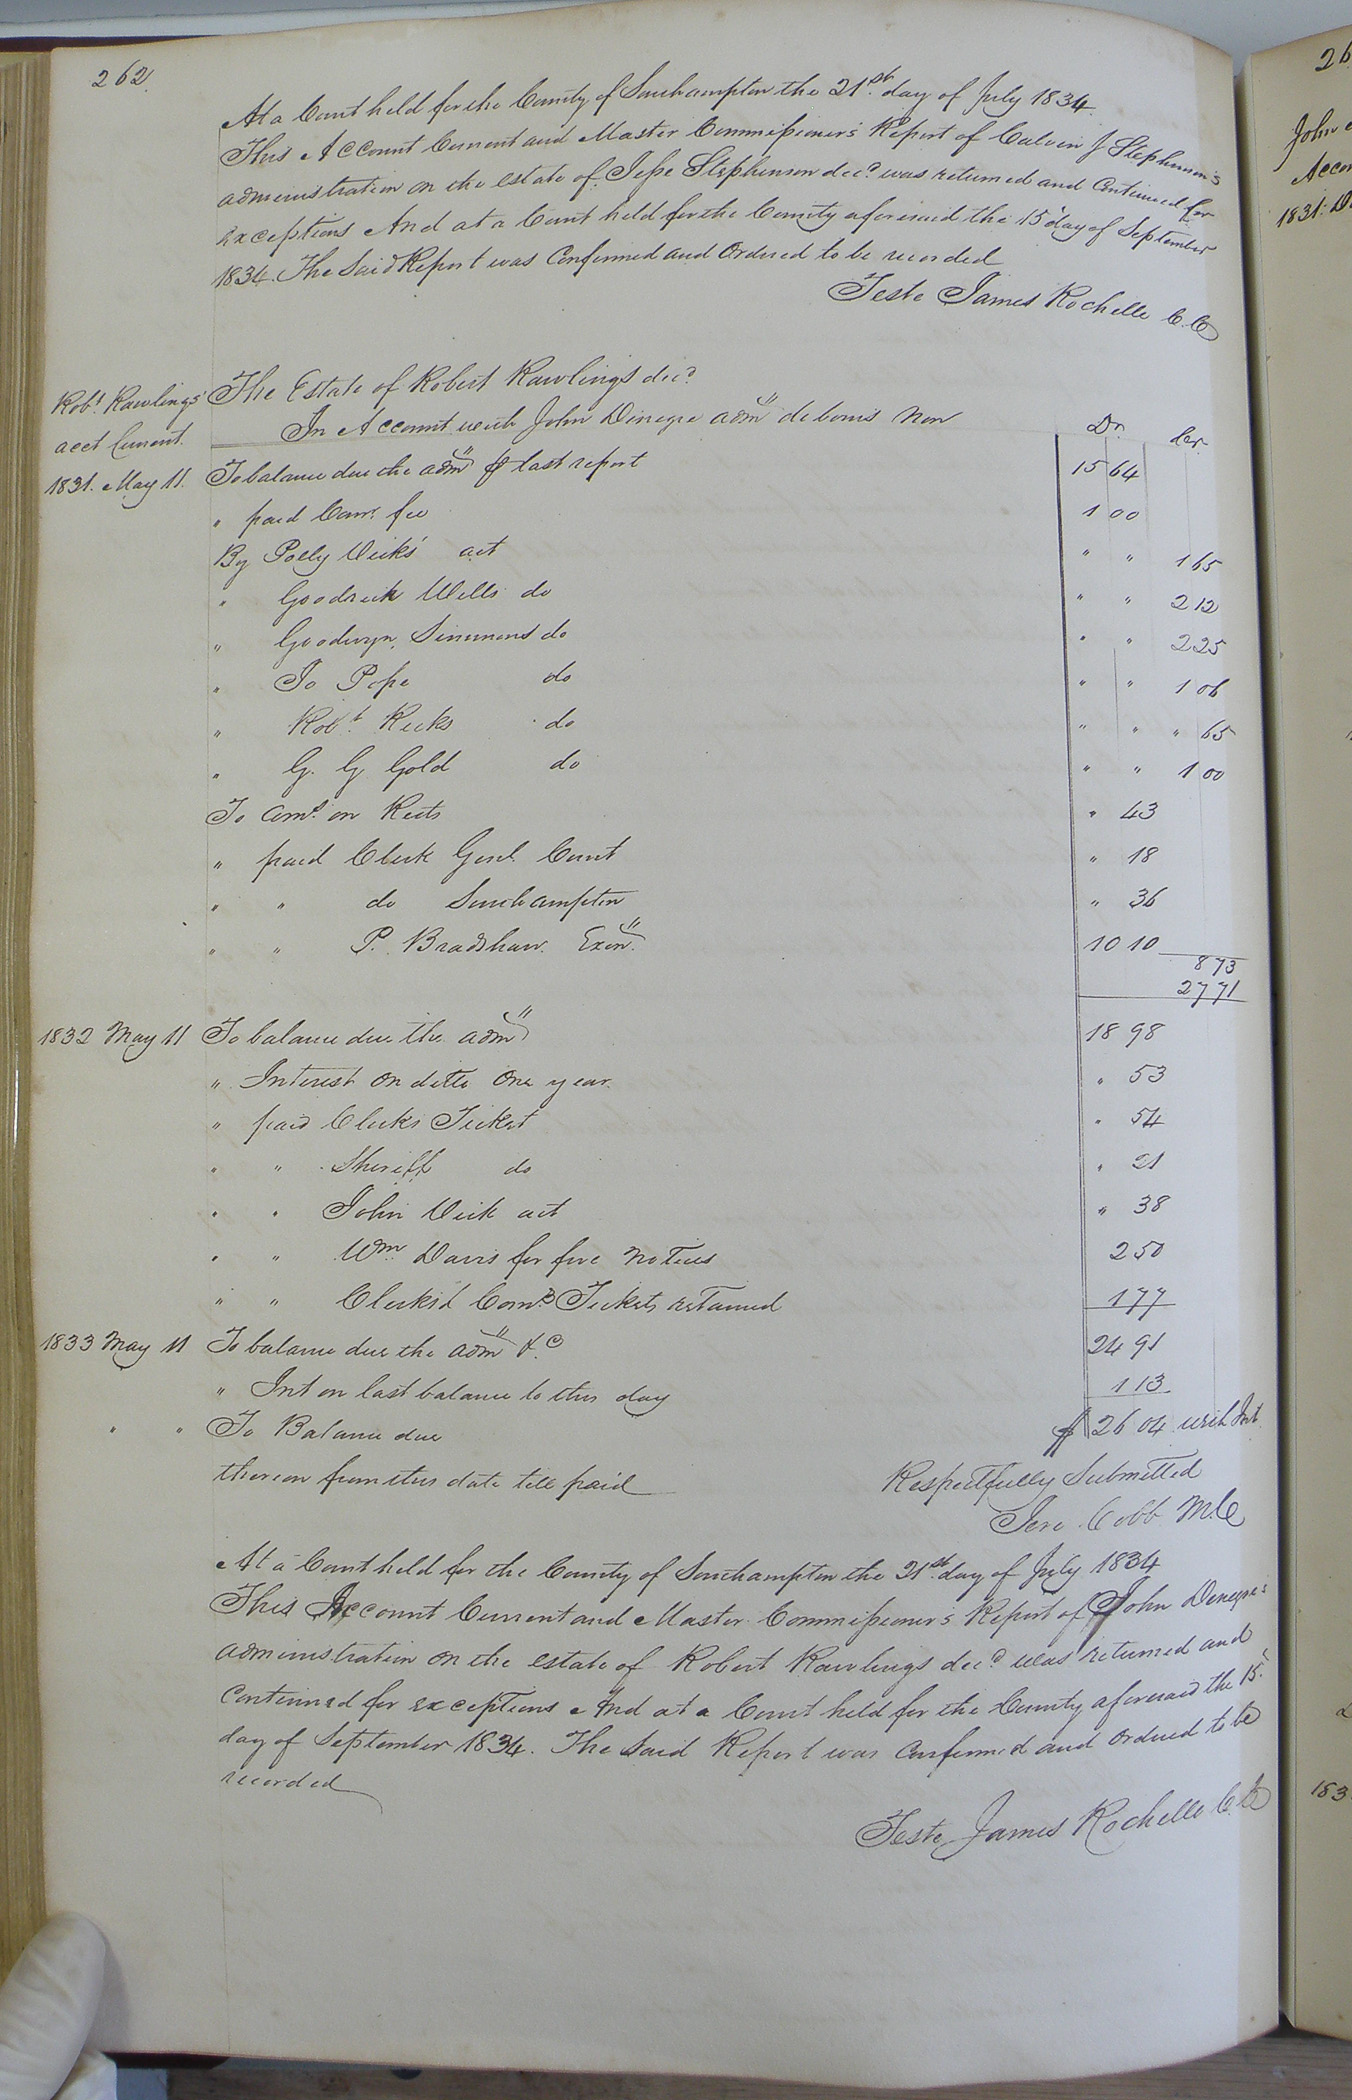 262.
At a Court held for the County of Southampton the 21st. day of July 1834.
This Account Current and Master Commissioner's Report of Calvin J Stephenson's
administration on the estate of Jesse Stephenson decd. was returned and Continued for
exceptions And at a Court held for the County aforesaid the 15 day of September
1834. The Said Report was Confirmed and Ordered to be recorded
Teste James Rochelle C.C
Robt. Rawlings' The Estate of Robert Rawlings decd.
acct Current. In Account with John Denegre adm" de bonis non Dr. Cr.
1831. May 11. To balance due the adm" pr last report 15 64
" paid Comr. fee 1 00
By Polly Vicks' act " " 1 65
" Goodrich Wells do " " 2 12
" Goodwyn, Simmons do " " 2 25
" Jo Pope do " " 1 06
" Robt. Ricks do " " " 65
" G. G Gold do " " 1 00
To Coms. on Rects " 43
" paid Clerk Genl. Court " 18
" " do Southampton " 36
" " P. Bradshaw. Exon". 10 10
8 73
27 71
1832 May 11 To balance due the adm" 18 98
" Interest on ditto One year. " 53
" paid Clerks Ticket " 54
" " Sheriff do " 21
" " John Vick act " 38
" " Wm. Davis for five notices 2 50
" " Clerks & Comrs Tickets retained 1 77
1833 May 11 To balance due the adm" &c 24 91
" Int on last balance to this day 1 13
" " To Balance due $ 26 04 with Int
thereon from this date till paid
Respectfully Submitted
Jere. Cobb M.C
At a Court held for the County of Southampton the 21st. day of July 1834
This Account Current and Master Commissioner's Report of John Denegre's
administration on the estate of Robert Rawlings decd. was returned and
Continued for exceptions And at a Court held for the County aforesaid the 15.
day of September 1834. The Said Report was Confirmed and Ordered to be
recorded
Teste James Rochelle C.C
26
John
Accou
1831. D
183